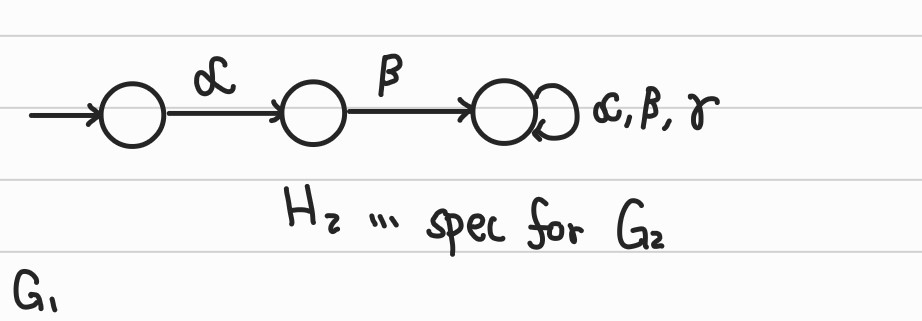 α β α, β, γ
H₂ ... spec for G₂
G₁